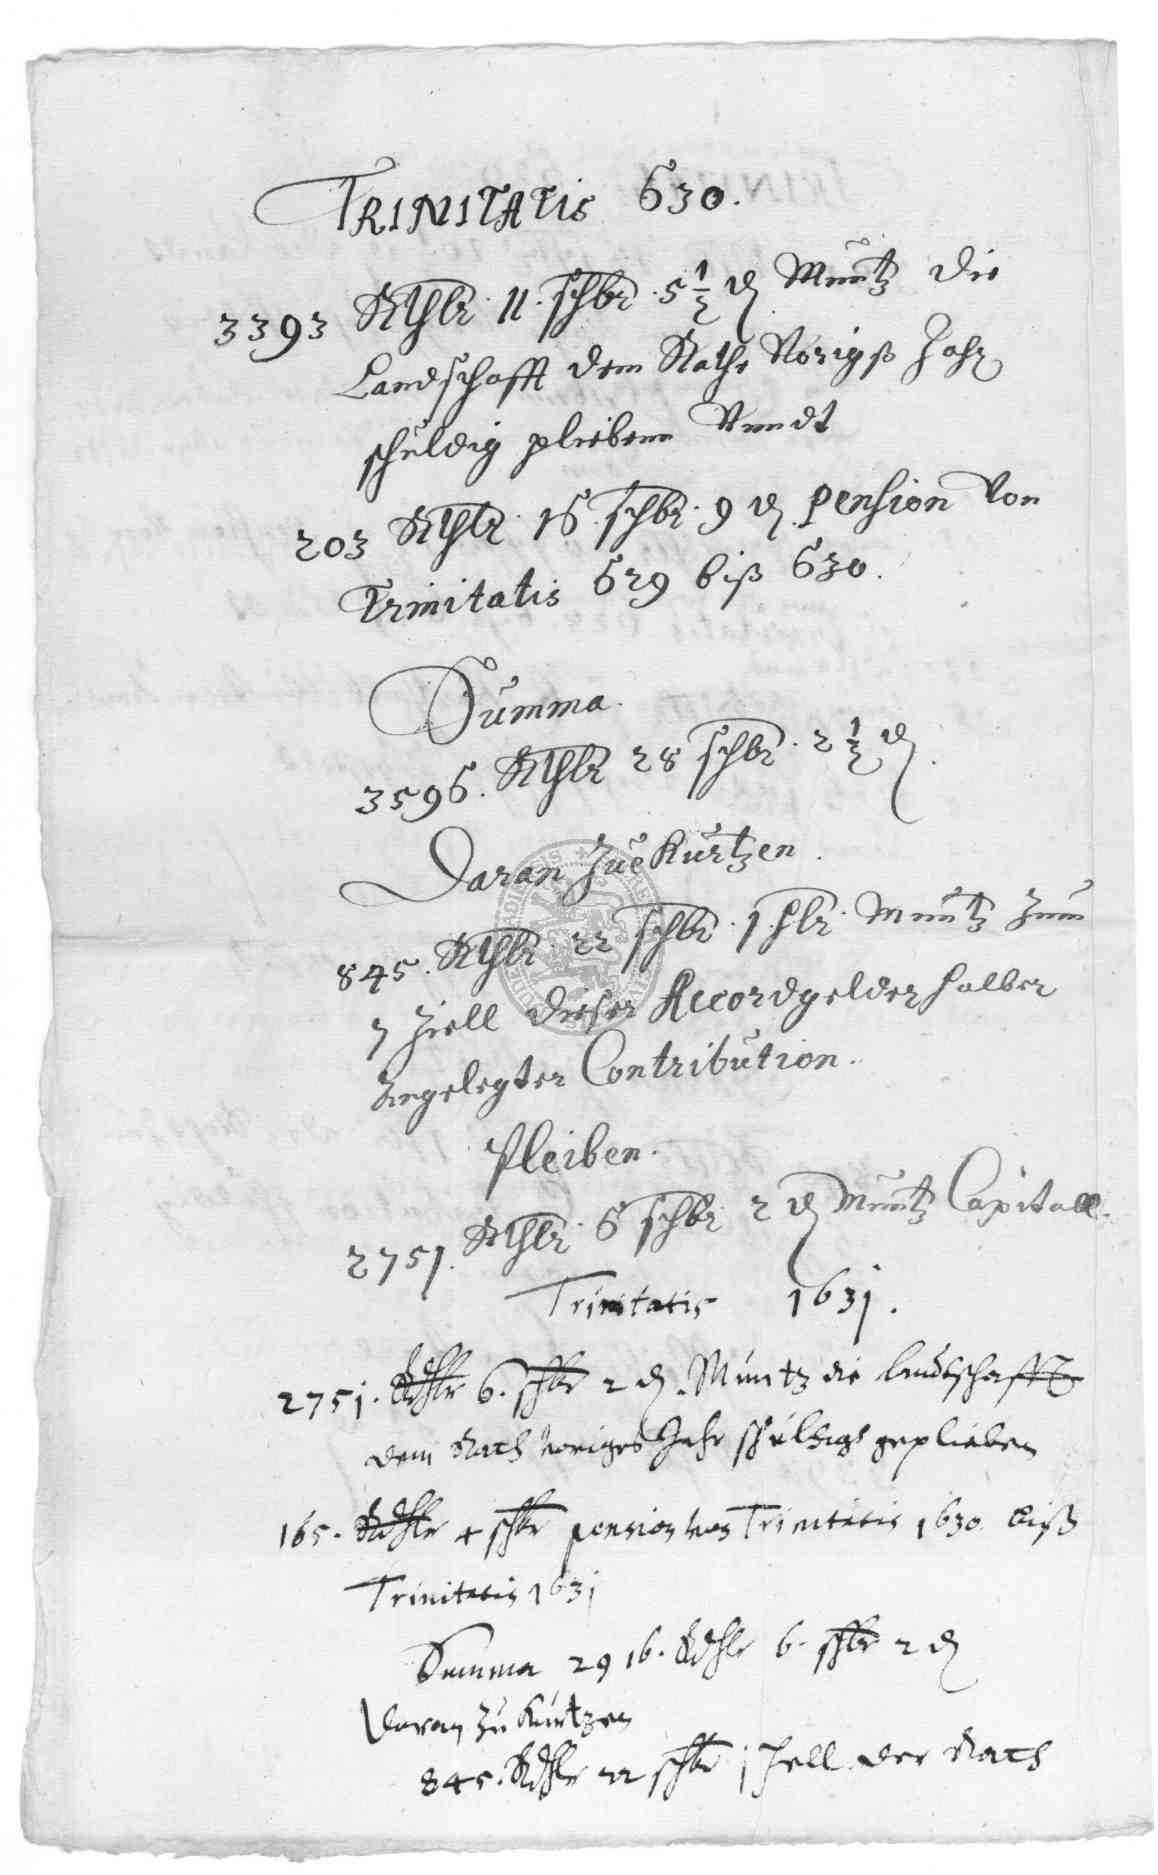 TRINITATis 630.
3393 Rthlr. 11. schbr. 5 1/2 ₰ Muntz die
Landschafft dem Rathe Vorigß Jahr
schuldig plieben Vnndt
203 Rthlr. 16. schbr. 9 ₰. Pension Von
Trinitatis 629 biß 630.
Summa.
3596. Rthlr 28 schbr. 2 1/2 ₰.
Daran Zue Kurtzen.
845. Rthlr. 22 schbr. 1. hlr. Muntz Zum
7 Ziell dieser Accordgelder halber
Angelegter Contribution.
Pleiben.
2751. Rthlr. 6 schbr. 2 ₰ Muntz Capitall.
Trinitatis 1631.
2751. Rthlr 6. schbr 2 ₰. Muntz die landtschafft
dem Rath voriges Jahr schuldigk geplieben
165. Rthlr + schbr pension von Trinitatis 1630 biß
Trinitatis 1631
Summa 2916. Rthlr 6. schbr 2 ₰
Daran Zu Kurtzen
845. Rthlr 22 schbr 1 hell der Rath